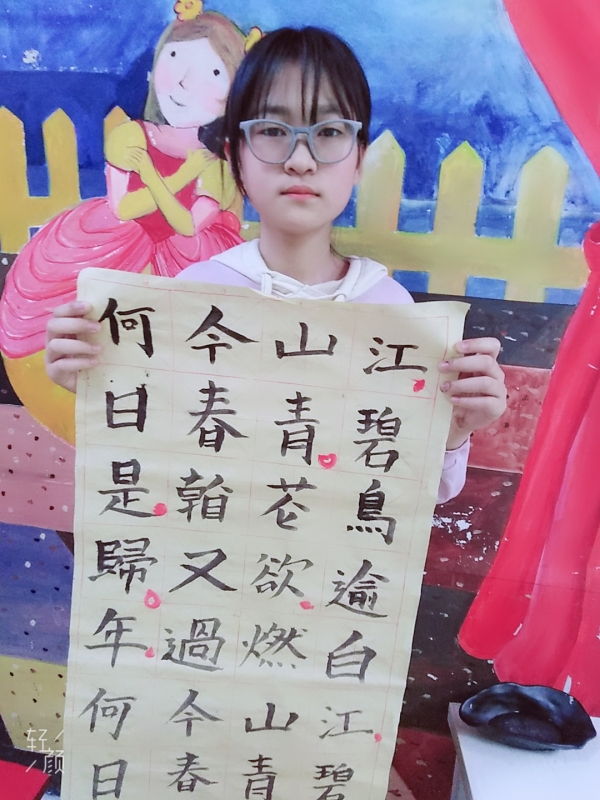 江碧鳥逾白江碧
山青花欲燃山青
今春看又過今春
何日是歸年何日
轻
颜